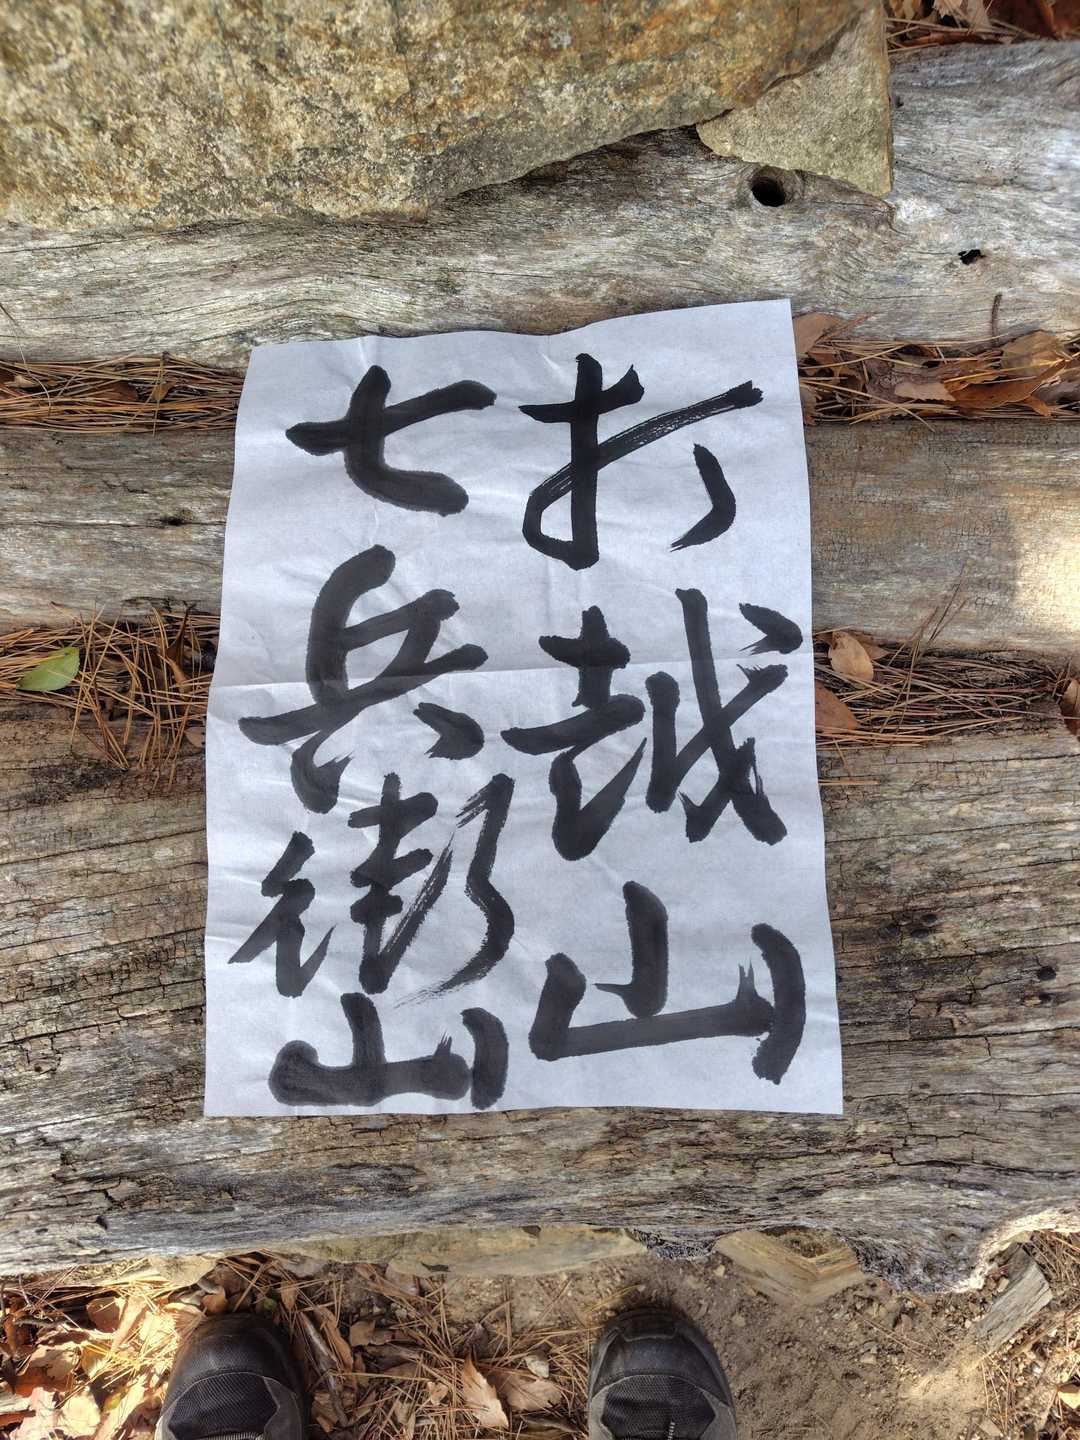 打越山
七兵衛山